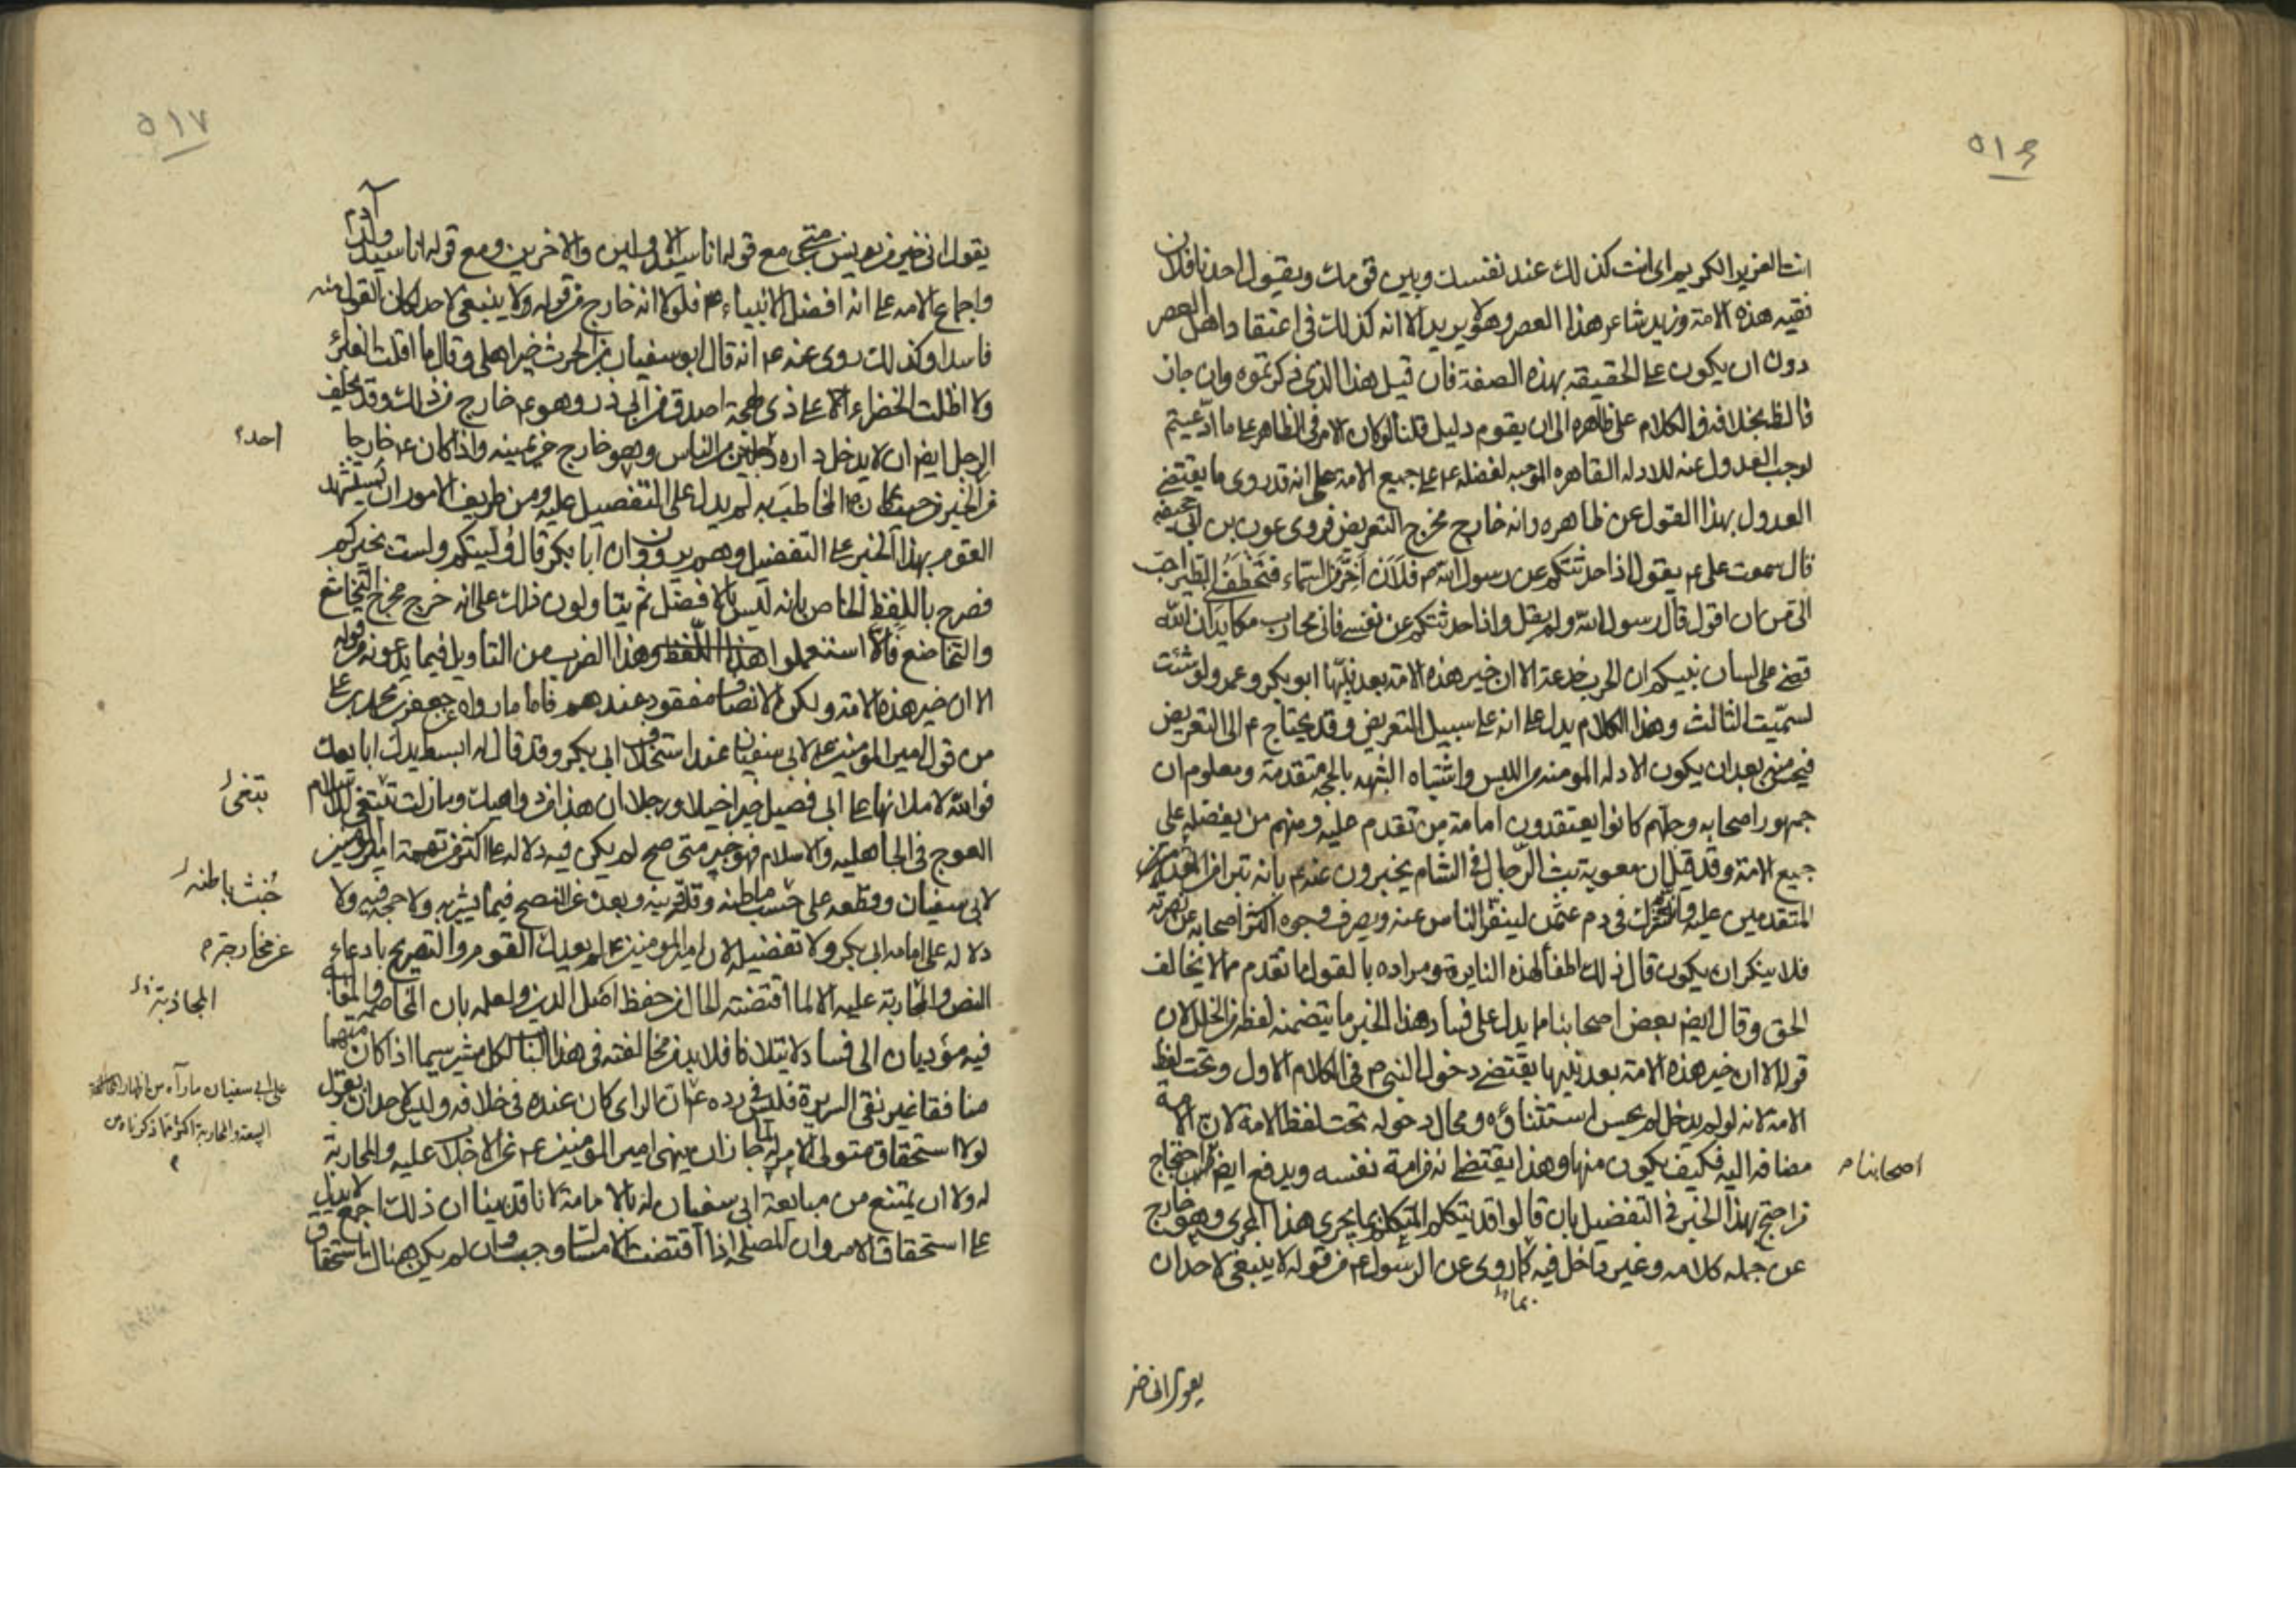 ٥١٦
انت العزيز الكريم اى انت كذلك عند نفسك وبين قومك ويقول احدنا فلان
فقيه هذه الامة وزيد شاعر هذا العصر وهو لا يريد الا انه كذلك فى اعتقاد اهل العصر
دون ان يكون على الحقيقه بهذه الصفة فان قيل هذا الذى ذكرتموه وان جاز
فالظ بخلافه والكلام على ظاهره الى ان يقوم دليل قلنا لو كان الامر فى الظاهر على ما ادعيتم
لوجب العدول عنه للادله القاهره الموجبه لفضله ع على جميع الامة على انه قد روى ما يقتضى
العدول بهذا القول عن ظاهره وانه خارج مخرج التعريض فروى عون بن ابى جحيفه
قال سمعت على ع يقول اذا حدثتكم عن رسول الله ص فلان اخر من السماء فتخطفنى الطير احب
الى من ان اقول قال رسول الله ولم يقل واذا حدثتكم عن نفسى فانى محارب مكايد ان الله
قضى على لسان نبيكم ان الحرب خدعة الا ان خير هذه الامة بعد نبيها ابو بكر وعمر ولو شئت
لسميت الثالث وهذا الكلام يدل على انه على سبيل التعريض وقد يحتاج ع الى التعريض
فيحسن منه بعد ان يكون الادله المومنه من اللبس واشتباه الشبهه بالحجه متقدمة ومعلوم ان
جمهور اصحابه وجلهم كانوا يعتقدون امامة من تقدم عليه ومنهم من يفضله على
جميع الامة وقد قيل ان معوية بث الرجال فى الشام يخبرون عنه ع بانه تبرا من
المتقدمين عليه وانه شرك فى دم عثمن لينفر الناس عنه ويصرف وجوه اكثر اصحابه عن نصرته
فلا ينكر ان يكون قال ذلك اطفأ لهذه النايرة ومراده بالقول ما تقدم مما لا يخالف
الحق وقال ايض بعض اصحابنا مما يدل على فساد هذا الخبر ما يتضمنه لفظه من الخلل لان
قوله الا ان خير هذه الامة بعد نبيها يقتضى دخول النبى ص فى الكلام الاول وتحت لفظ
الامة لانه لو لم يدخل لم يحسن استثناؤه ومحال دخوله تحت لفظ الامة لان الامة
مضافه اليه فكيف يكون منها وهذا يقتضى انه من امة نفسه ويدفع ايض احتجاج
اصحابنا
من احتج بهذا الخبر فى التفضيل بان قالوا قد يتكلم المتكلم بما يجرى هذا المجرى وهو خارج
عن جمله كلامه وغير داخل فيه كما روى عن الرسول ع من قوله لا ينبغى لاحد ان
بما
يقول انى خير
٥١٧
يقول انى خير من يونس بن متى مع قوله انا سيد الاولين والاخرين ومع قوله انا سيد ولد آدم
واجماع الامه على انه افضل الانبياء ع فلولا انه خارج من قوله ولا ينبغى لاحد لكان القول منه
فاسدا وكذلك روى عنه ع انه قال ابو سفيان بن الحرث خير اهلى وقال ما اقلت الغبراء
ولا اظلت الخضراء على ذى لهجة اصدق من ابى ذر وهو ع خارج من ذلك وقد يحلف
الرجل ايض ان لا يدخل داره من الناس وهو خارج عن يمينه واذا كان ع خارجا
احد
من الخبر المخاطب به لم يدل على التفضيل عليه ومن طريف الامور ان يستشهد
القوم بهذا الخبر على التفضيل وهم يروون ان ابا بكر قال وليتكم ولست بخيركم
فصرح باللفظ الخاص بانه ليس بالافضل ثم يتاولون ذلك على انه خرج مخرج التخاشع
والتخاضع فالا استعملوا هذا الضرب من التاويل فيما يدعونه من قوله
الا ان خير هذه الامة ولكن الانصاف مفقود عندهم فاما ما رواه عن جعفر بن محمد بن على
من قول امير المومنين على لابى سفيان عند استخلاف ابى بكر وقد قال له ابسط يدك ابايعك
فوالله لاملانها على ابى فصيل خيلا ورجلا ان هذا من دواهيك وما زلت تبتغى للاسلام
تبتغى
العوج فى الجاهليه والاسلام فهو خبر متى صح لم يكن فيه دلاله على اكثر من تهمة امير المومنين
لابى سفيان وقطعه على خبث باطنه وقلة دينه وبعده عن النصح فيما يشير به ولا حجه فيه ولا
خبث باطنه
دلاله على امامه ابى بكر ولا تفضيله لان امير المومنين ع لم يعدل القوم والتصريح بادعاء
النص والمحاربة عليه الا لما اقتضته الحال من حفظ اصل الدين ولعلمه بان المخاصمه والمغالبه
المجاذبة
فيه مؤديان الى فساد لا يتلافا فلا بد من مخالفته فى هذا الباب لكل مشير سيما اذا كان متهما
منافقا غير نقى السريرة فليس فى رده ع ما كان الراى كان عنده فى خلافه وليس لاحد ان يقول
على ابى سفيان ما رآه من اظهار
البيعة والمحاربة اكثر مما ذكرناه من
لولا استحقاق متولى الامر له لما جاز ان ينهى امير المومنين ع عن الاجلاب عليه والمحاربة
له ولا ان يمتنع من مبايعة ابى سفيان له بالامامة لانا قد بينا ان ذلك اجمع لا يدل
على استحقاق الامر وان المصلحه اذا اقتضت الامساك وجب وان لم يكن هناك استحقاق